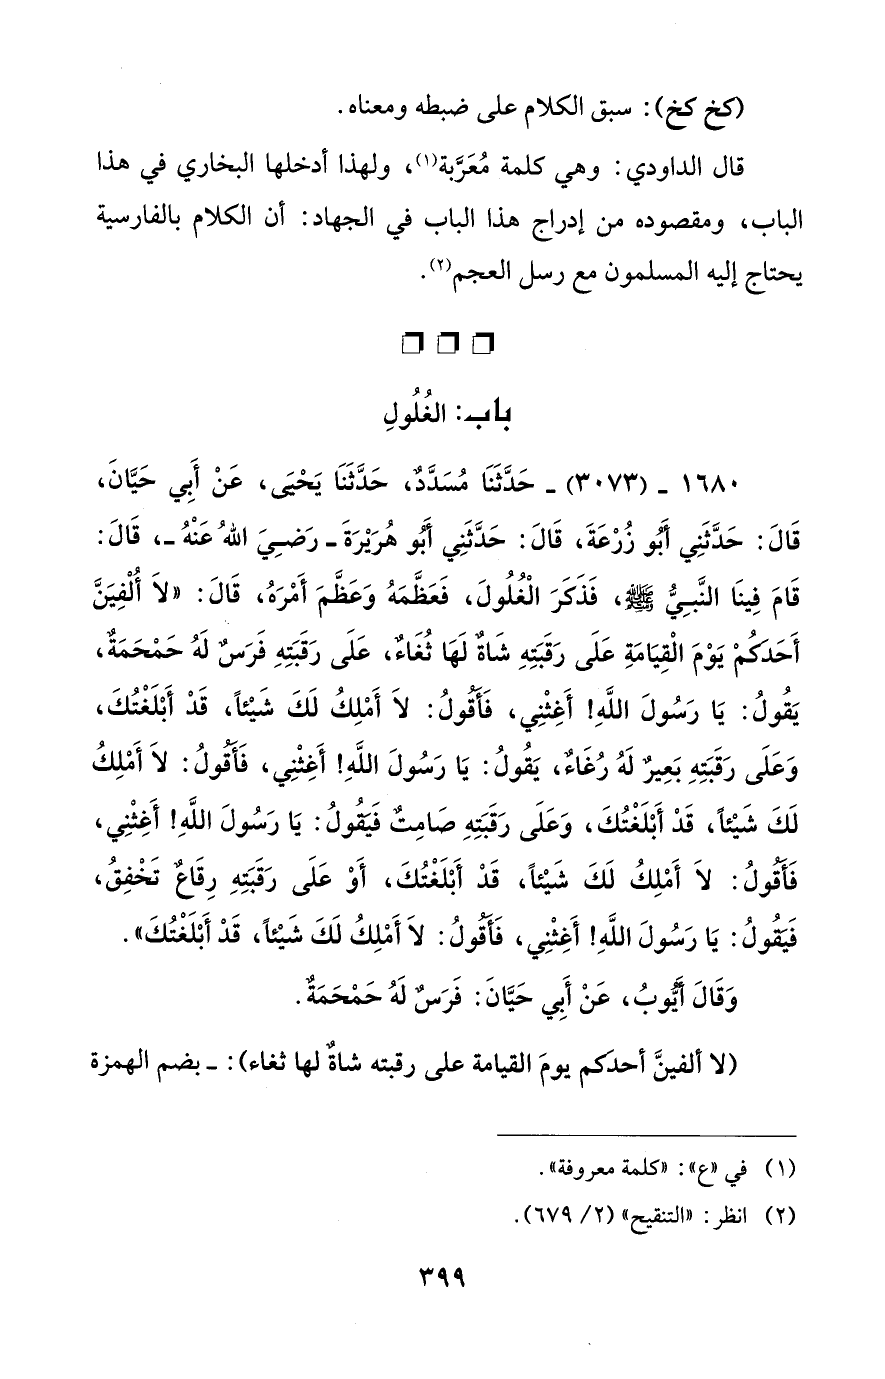 (كخ كخ): سبق الكلام على ضبطه ومعناه.
قال الداودي: وهي كلمة مُعَرَّبة(١)، ولهذا أدخلها البخاري في هذا
الباب، ومقصوده من إدراج هذا الباب في الجهاد: أن الكلام بالفارسية
يحتاج إليه المسلمون مع رسل العجم(٢).
❒ ❒ ❒
باب: الغُلُولِ
١٦٨٠ ـ (٣٠٧٣) ـ حَدَّثَنَا مُسَدَّدٌ، حَدَّثَنَا يَحْيَى، عَنْ أَبِي حَيَّانَ،
قَالَ: حَدَّثَنِي أَبُو زُرْعَةَ، قَالَ: حَدَّثَنِي أَبُو هُرَيْرَةَ ـ رَضِيَ اللهُ عَنْهُ ـ، قَالَ:
قَامَ فِينَا النَّبِيُّ ﷺ، فَذَكَرَ الْغُلُولَ، فَعَظَّمَهُ وَعَظَّمَ أَمْرَهُ، قَالَ: «لاَ أُلْفِيَنَّ
أَحَدَكُمْ يَوْمَ الْقِيَامَةِ عَلَى رَقَبَتِهِ شَاةٌ لَهَا ثُغَاءٌ، عَلَى رَقَبَتِهِ فَرَسٌ لَهُ حَمْحَمَةٌ،
يَقُولُ: يَا رَسُولَ اللَّهِ! أَغِثْنِي، فَأَقُولُ: لاَ أَمْلِكُ لَكَ شَيْئاً، قَدْ أَبْلَغْتُكَ،
وَعَلَى رَقَبَتِهِ بَعِيرٌ لَهُ رُغَاءٌ، يَقُولُ: يَا رَسُولَ اللَّهِ! أَغِثْنِي، فَأَقُولُ: لاَ أَمْلِكُ
لَكَ شَيْئاً، قَدْ أَبْلَغْتُكَ، وَعَلَى رَقَبَتِهِ صَامِتٌ فَيَقُولُ: يَا رَسُولَ اللَّهِ! أَغِثْنِي،
فَأَقُولُ: لاَ أَمْلِكُ لَكَ شَيْئاً، قَدْ أَبْلَغْتُكَ، أَوْ عَلَى رَقَبَتِهِ رِقَاعٌ تَخْفِقُ،
فَيَقُولُ: يَا رَسُولَ اللَّهِ! أَغِثْنِي، فَأَقُولُ: لاَ أَمْلِكُ لَكَ شَيْئاً، قَدْ أَبْلَغْتُكَ».
وَقَالَ أَيُّوبُ، عَنْ أَبِي حَيَّانَ: فَرَسٌ لَهُ حَمْحَمَةٌ.
(لا ألفينَّ أحدَكم يومَ القيامة على رقبته شاةٌ لها ثغاء): ـ بضم الهمزة
(١) في «ع»: «كلمة معروفة».
(٢) انظر: «التنقيح» (٢/ ٦٧٩).
٣٩٩